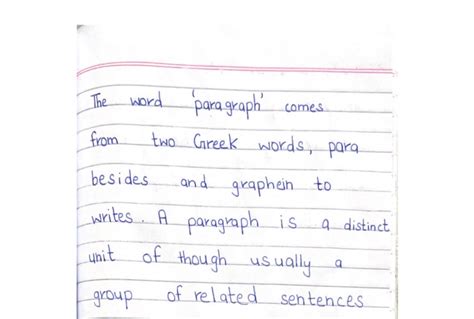 The word 'paragraph' comes
from two Greek words, para
besides and graphein to
writes. A paragraph is a distinct
unit of though usually a
group of related sentences